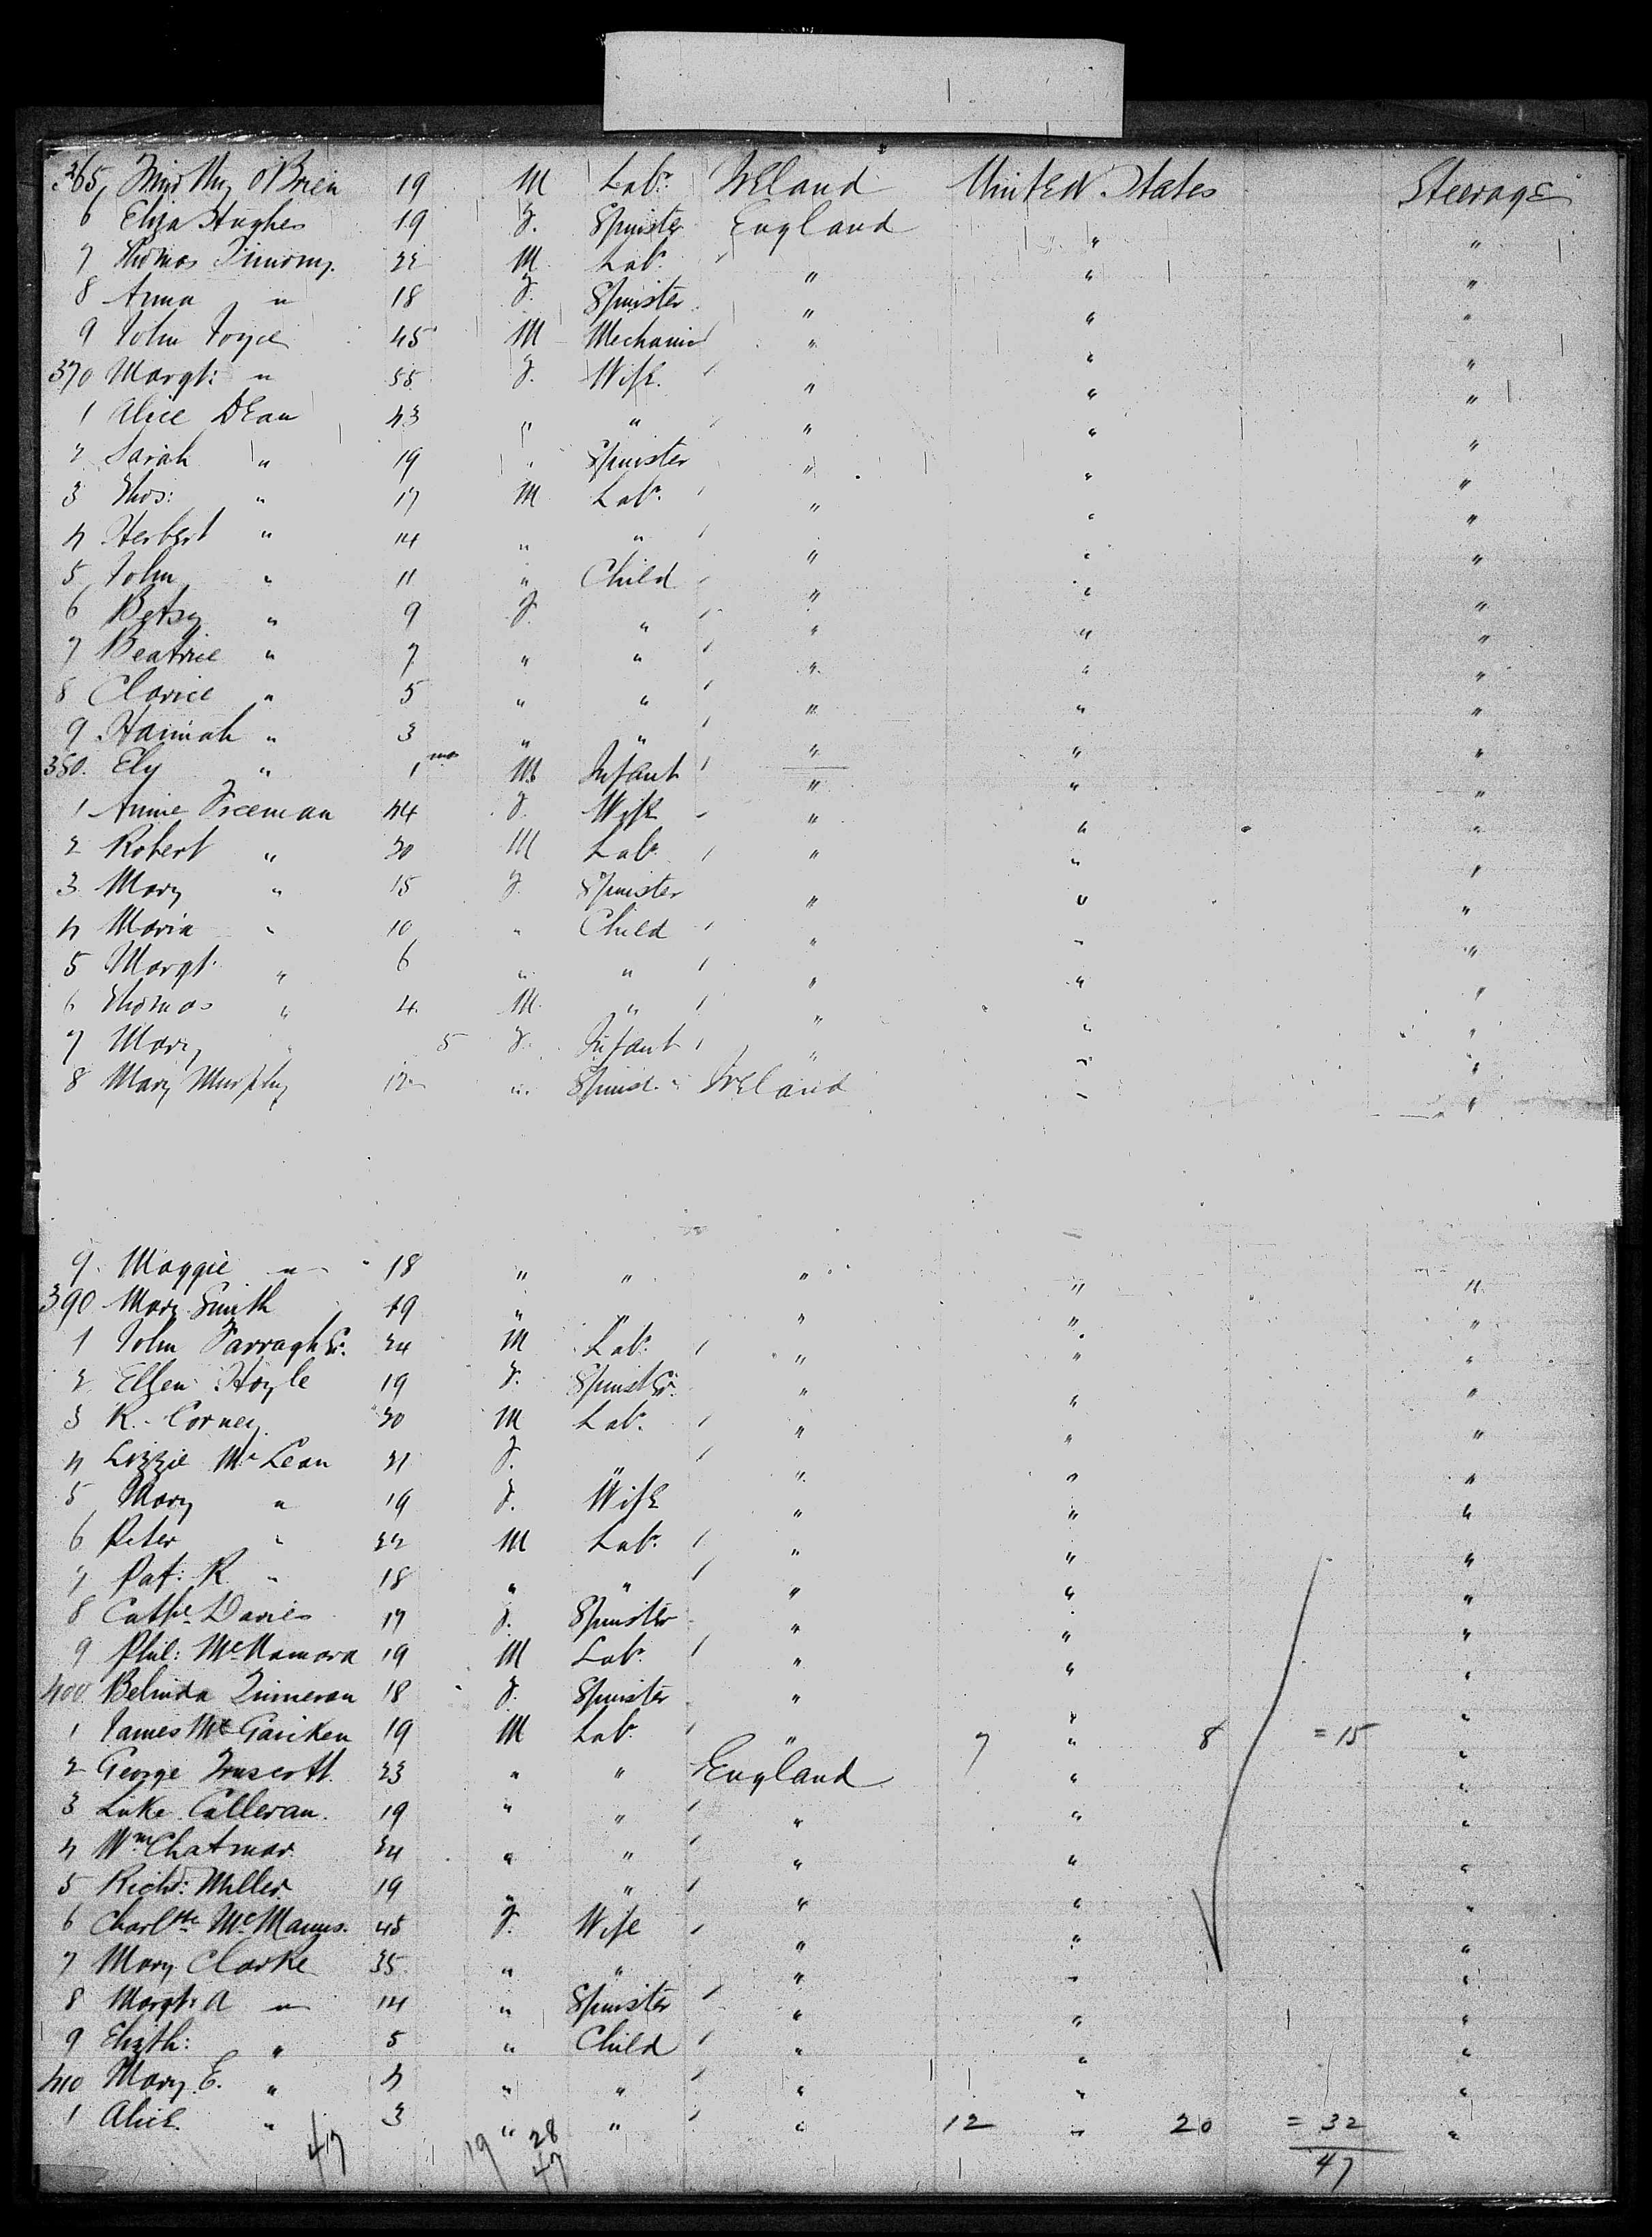 365 Timothy O'Brien 19 M Labr. Ireland United States Steerage
6 Eliza Hughes 19 F. Spinster England " "
7 Thomas 22 M Labr. " " "
8 Anna " 18 F. Spinster " " "
9 John Joyce 45 M Mechanic " " "
370 Margt: " 55 F. Wife " " "
1 Alice Dean 43 " " " " "
2 Sarah " 19 " Spinster " " "
3 Thos: " 17 M Labr. " " "
4 Herbert " 14 " " " " "
5 John " 11 " Child " " "
6 Betsy " 9 F. " " " "
7 Beatrice " 7 " " " " "
8 Clarice " 5 " " " " "
9 Hannah " 3 " " " " "
380. Ely " 1 mo M Infant " " "
1 Annie Freeman 44 F. Wife " " "
2 Robert " 20 M Labr. " " "
3 Mary " 15 F. Spinster " " "
4 Maria " 10 " Child " " "
5 Margt. " 6 " " " " "
6 Thomas " 4 M. " " " "
7 Mary " 5 F. Infant " " "
8 Mary Murphy " Spinst. Ireland " "
9. Maggie " 18 " " " " "
390 Mary Smith 19 " " " " "
1 John Farragher. 24 M Labr. " " "
2 Ellen Hoyle 19 F. Spinster. " " "
3 R. Corney 20 M Labr. " " "
4 Lizzie Mc Lean 21 F. " " " "
5 Mary " 19 F. Wife " " "
6 Peter " 22 M Labr. " " "
7 Pat: R. " 18 " " " " "
8 Cathe Davies 17 F. Spinster " " "
9 Phil: McNamara 19 M Labr. " " "
400. Belinda 18 F. Spinster " " "
1 James Mc 19 M Labr. " 7 " 8 = 15 "
2 George Truscott. 23 " " England " "
3 Luke Calleran. 19 " " " " "
4 Wm Chatmar 24 " " " " "
5 Richd: Miller. 19 " " " " "
6 Charltte McManus. 45 F. Wife " " "
7 Mary Clarke 35 " " " " "
8 Margt: A " 14 " Spinster " " "
9 Elizth: " 5 " Child " " "
410 Mary E. " 4 " " " " "
1 Alice. " 3 " " " 12 " 20 = 32 "
47 19 28 47
47